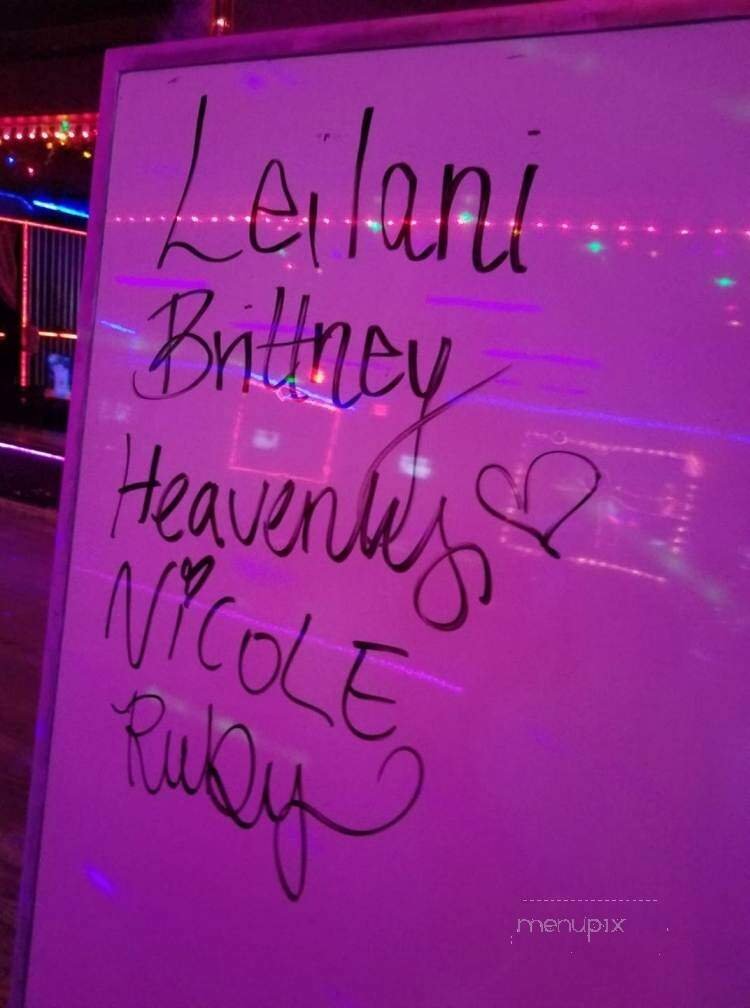 Leilani
Brittney
Heavenly ♡
NiCOLE
Ruby
menupix